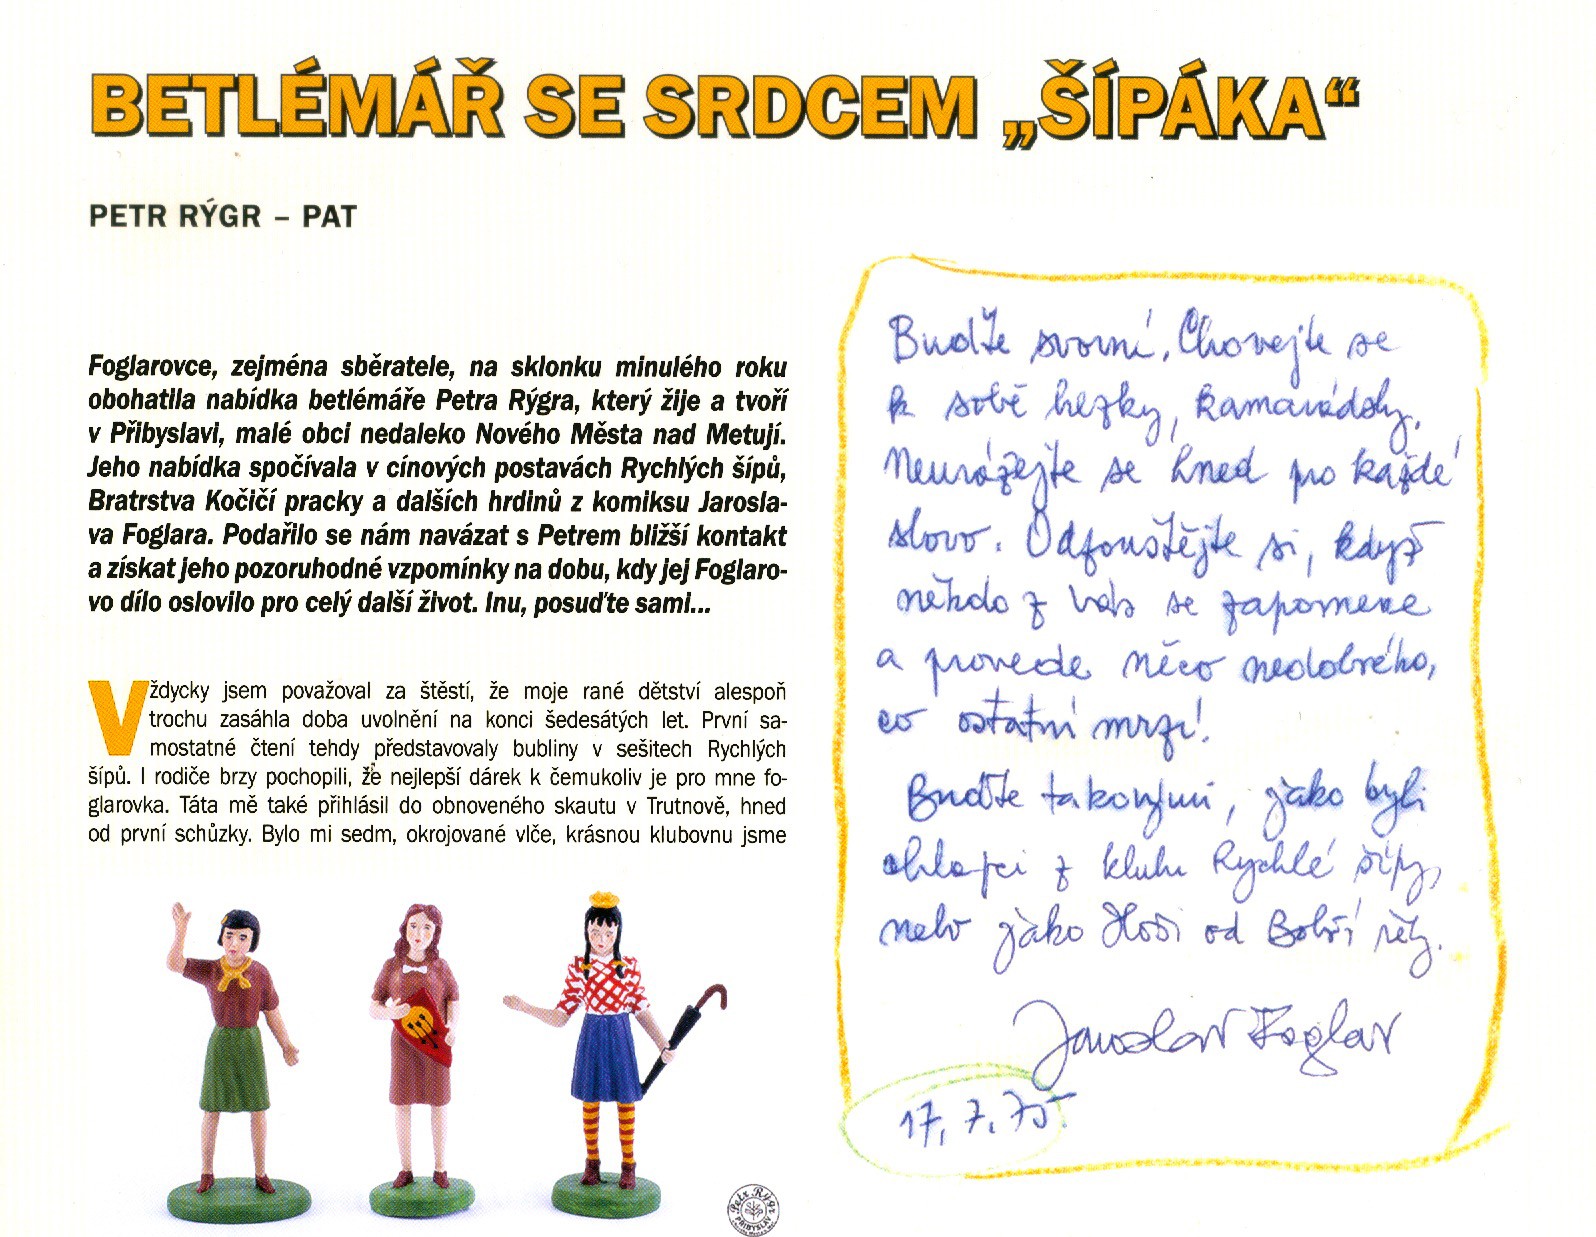 BETLÉMÁŘ SE SRDCEM „ŠÍPÁKA“
PETR RÝGR – PAT
Foglarovce, zejména sběratele, na sklonku minulého roku
obohatila nabídka betlémáře Petra Rýgra, který žije a tvoří
v Přibyslavi, malé obci nedaleko Nového Města nad Metují.
Jeho nabídka spočívala v cínových postavách Rychlých šípů,
Bratrstva Kočičí pracky a dalších hrdinů z komiksu Jarosla-
va Foglara. Podařilo se nám navázat s Petrem bližší kontakt
a získat jeho pozoruhodné vzpomínky na dobu, kdy jej Foglaro-
vo dílo oslovilo pro celý další život. Inu, posuďte sami...
Vždycky jsem považoval za štěstí, že moje rané dětství alespoň
trochu zasáhla doba uvolnění na konci šedesátých let. První sa-
mostatné čtení tehdy představovaly bubliny v sešitech Rychlých
šípů. I rodiče brzy pochopili, že nejlepší dárek k čemukoliv je pro mne fo-
glarovka. Táta mě také přihlásil do obnoveného skautu v Trutnově, hned
od první schůzky. Bylo mi sedm, okrojované vlče, krásnou klubovnu jsme
Buďte svorní. Chovejte se
k sobě hezky, kamarádsky.
Neurážejte se hned pro každé
slovo. Odpouštějte si, když
někdo z vás se zapomene
a provede něco nedobrého,
co ostatní mrzí!
Buďte takovými, jako byli
chlapci z klubu Rychlé šípy,
nebo jako Hoši od Bobří řeky.
Jaroslav Foglar
17. 7. 75.
Petr Rýgr
PŘIBYSLAV